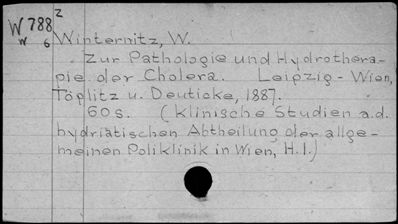 W788
w 6
z
Winternitz, W.
Zur Pathologie und Hydrothera-
pie der Cholera. Leipzig-Wien,
Töplitz u. Deuticke, 1887.
60s. (Klinische Studien a.d.
hydriatischen Abtheilung der allge-
meinen Poliklinik in Wien, H.I.)